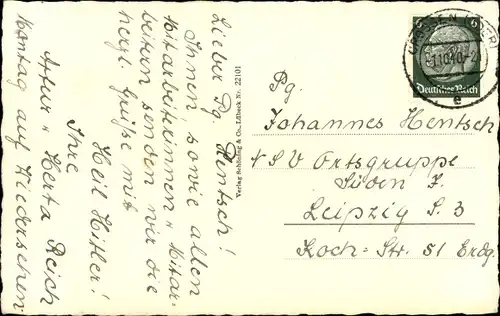 Lieber Pg. Hentsch!
Ihnen, sowie allen
Mitarbeiterinnen u. Mitar-
beitern senden wir die
herzl. Grüße mit
Heil Hitler!
Ihre
Artur u. Herta Reich
Montag auf Wiedersehen.
Verlag Schöning & Co., Lübeck Nr. 22101
CROSSEN (ODER)
6
Deutsches Reich
e
Pg.
Johannes Hentsch
NSV Ortsgruppe
Süden F.
Leipzig S. 3
Koch-Str. 51 Erdg.